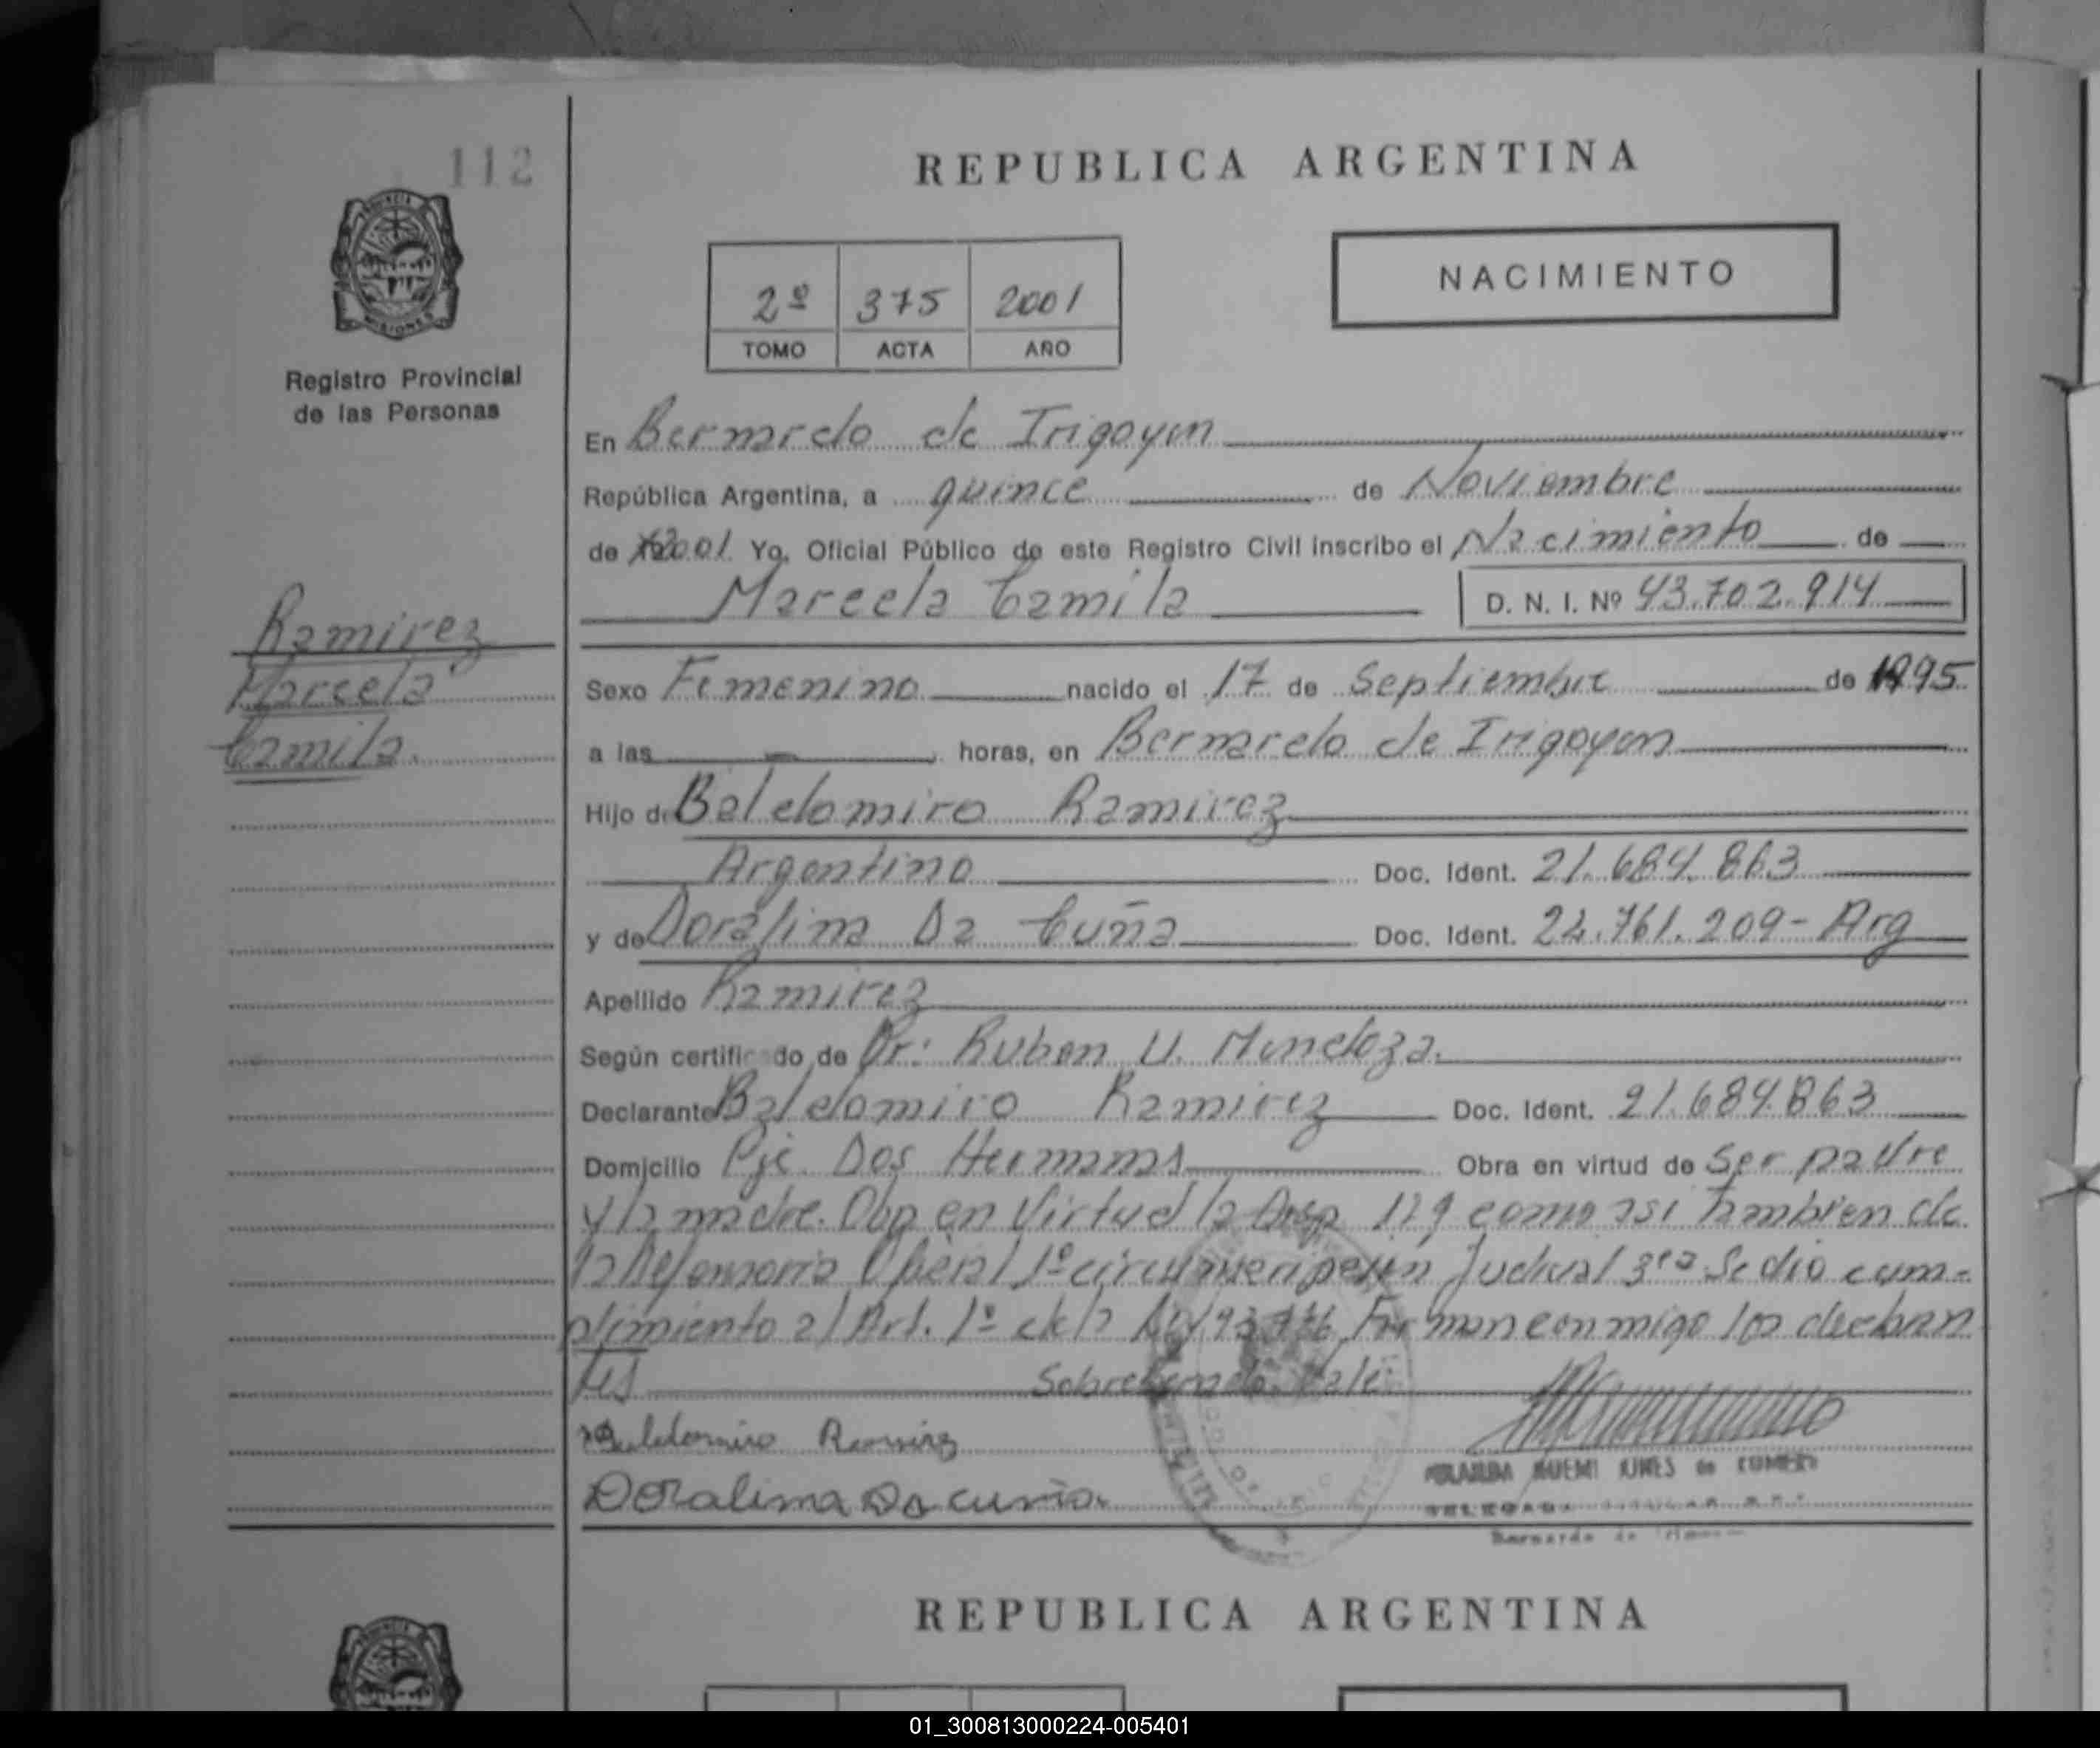 112
REPUBLICA ARGENTINA
NACIMIENTO
2º 375 2001
TOMO ACTA AÑO
Registro Provincial
de las Personas
En Bernardo de Irigoyen
República Argentina, a quince de Noviembre
de 2001 Yo, Oficial Público de este Registro Civil inscribo el Nacimiento de
Marcela Camila D. N. I. Nº 43.702.914
Ramirez
Marcela
Camila
Sexo Femenino nacido el 17 de Septiembre de 1995
a las — horas, en Bernardo de Irigoyen
Hijo de Baldomiro Ramirez
Argentino Doc. Ident. 21.684.863
y de Doralina Da Cuña Doc. Ident. 22.761.209 - Arg
Apellido Ramirez
Según certificado de Dr: Ruben U. Mendoza.
Declarante Baldomiro Ramirez Doc. Ident. 21.684.863
Domicilio Pje. Dos Hermanas Obra en virtud de Ser padre
y la madre. Obra en Virtud la Disp. 119 como asi tambien de
la Defensoria Oficial 1º Judicial 3ra Se dio cum-
plimiento al Art. 1º de la Firman conmigo los declaran
tes Sobreborrado Vale:
Baldomiro Ramirez
Doralima Da cuña
Bernardo de
REPUBLICA ARGENTINA
01_300813000224-005401